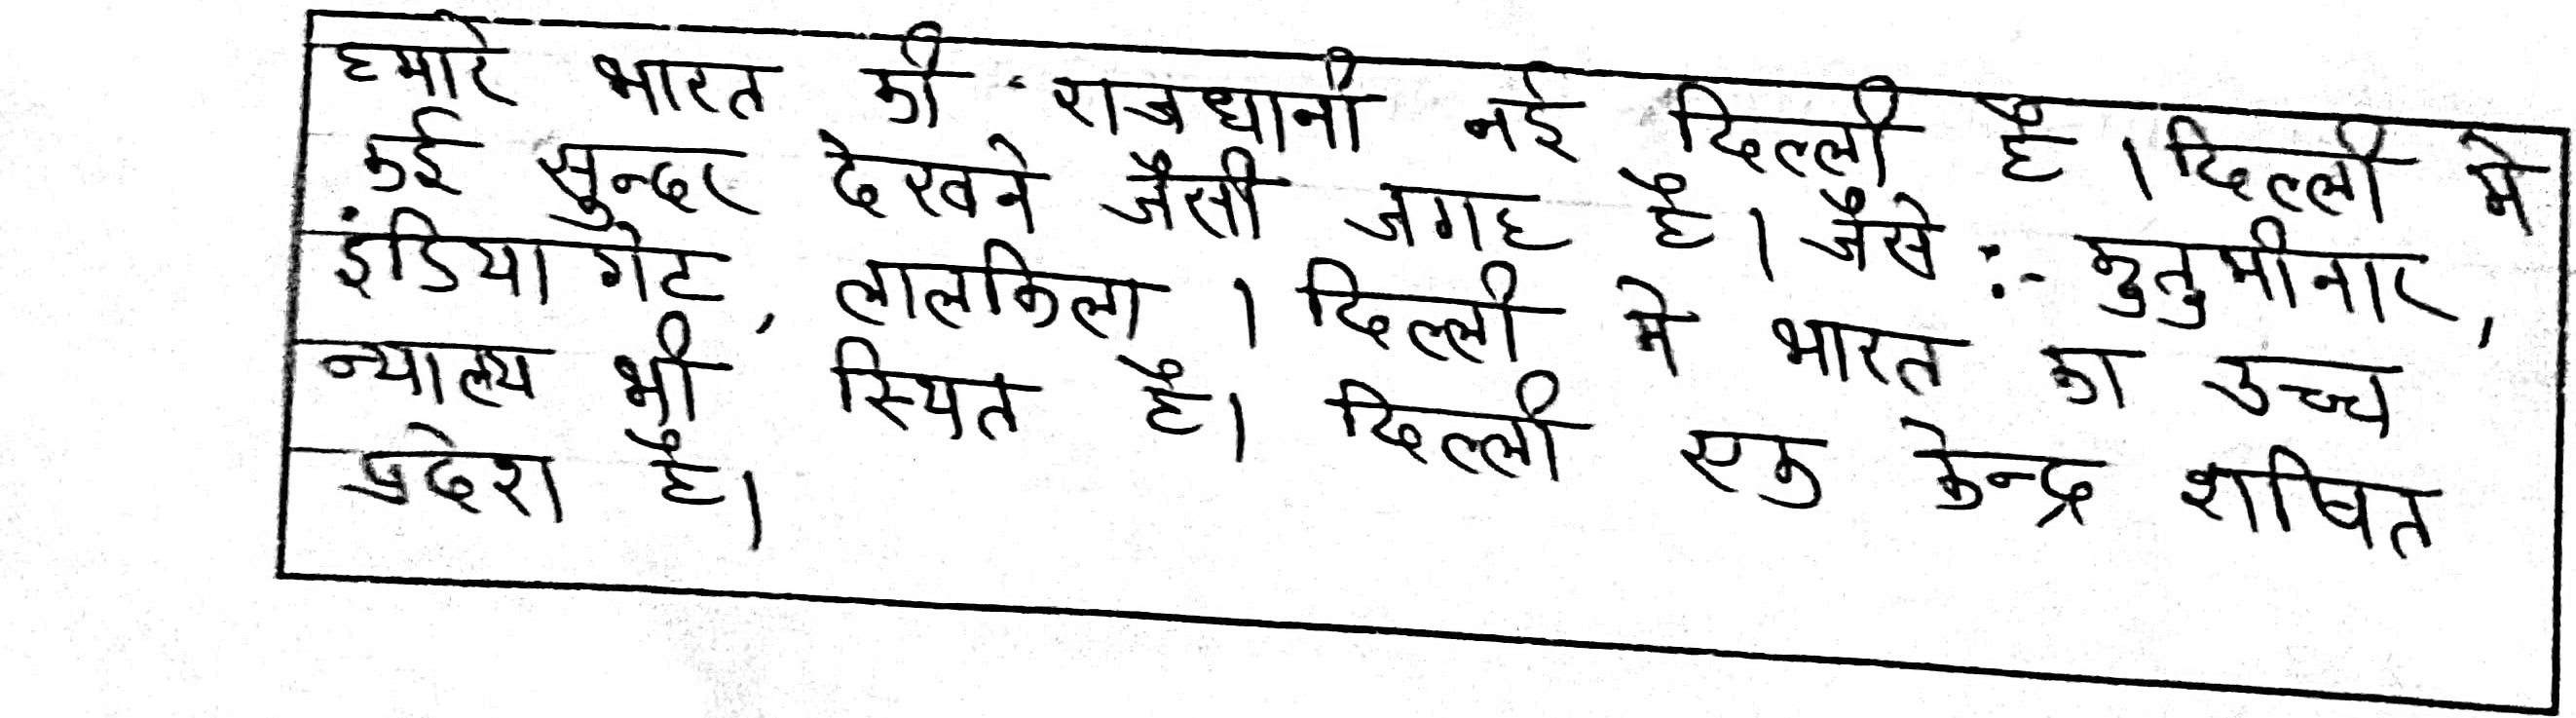 हमारे भारत की राजधानी नई दिल्ली है । दिल्ली मे
कई सुन्दर देखने जैसी जगह है । जैसे :- कुतुमीनार,
इंडिया गेट, लालकिला । दिल्ली मे भारत का उच्च
न्यालय भी स्थित है। दिल्ली एक केन्द्र शाषित
प्रदेश है।